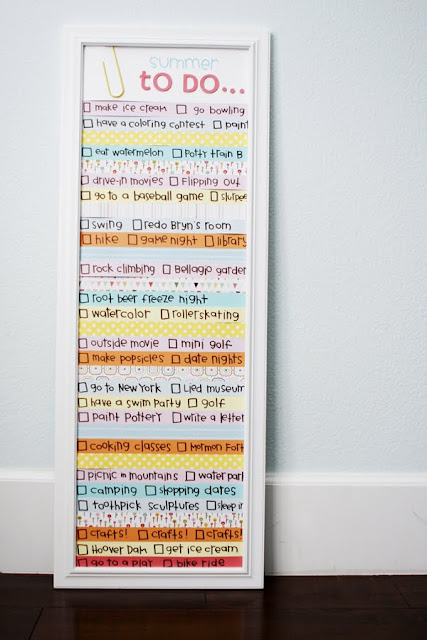 summer
TO DO...
make ice cream go bowling
have a coloring contest paint
eat watermelon Potty train B
drive-in movies Flipping out
go to a baseball game slurpee
swing redo Bryn's room
hike game night library
rock climbing Bellagio garden
root beer freeze night
watercolor rollerskating
outside movie mini golf
make popsicles date nights
go to New York Lied museum
have a swim party golf
paint Pottery write a letter
cooking classes Mormon Fort
picnic in mountains water park
camping shopping dates
toothpick sculptures sleep in
crafts! crafts! crafts!
Hoover Dam get ice cream
go to a play bike ride